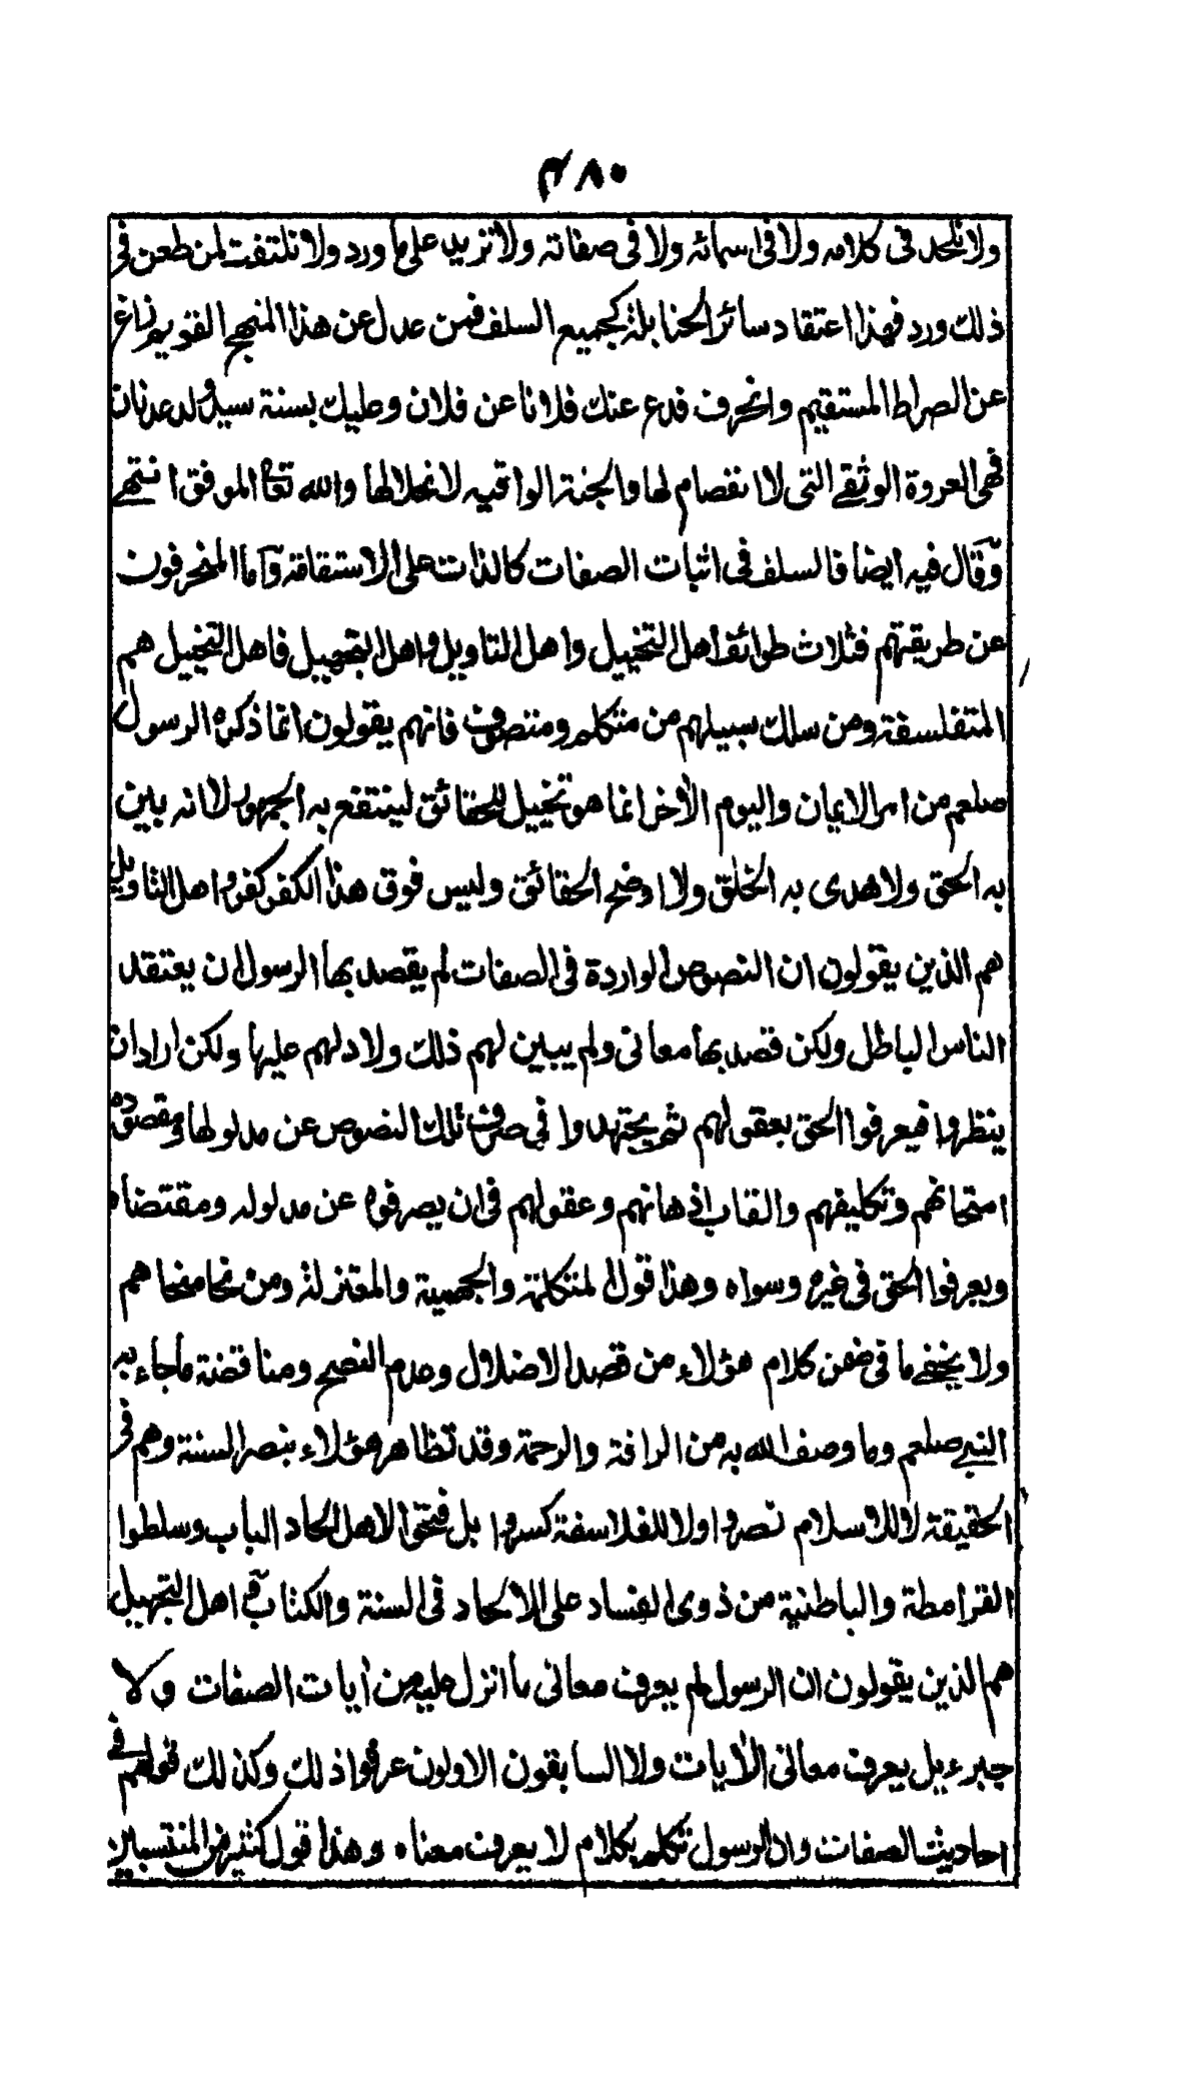 ٤٨٠
ولا نلحد فى كلامه ولا فى اسمائه ولا فى صفاته ولا نزيد على ما ورد ولا نلتفت لمن طعن فى
ذلك ورد فهذا اعتقاد سائر الحنابلة كجميع السلف فمن عدل عن هذا المنهج القويم زاغ
عن الصراط المستقيم وانحرف فدع عنك فلانا عن فلان وعليك بسنة سيد ولد عدنان
فهى العروة الوثقى التى لا انفصام لها والجنة الواقيه لا نحلالها والله تعا الموفق انتهى
وقال فيه ايضا فالسلف فى اثبات الصفات كالذات على الاستقامة واما المنحرفون
عن طريقتهم فثلاث طوائف اهل التخييل واهل التاويل واهل التجهيل فاهل التخييل هم
المتفلسفة ومن سلك سبيلهم من متكلم ومتصوف فانهم يقولون انما ذكره الرسول
صلعم من امر الايمان واليوم الأخر انما هو تخييل للحقائق لينتفع به الجمهور لا انه بين
به الحق ولا هدى به الخلق ولا اوضح الحقائق وليس فوق هذا الكفر كفر واهل التاويل
هم الذين يقولون ان النصوص الواردة فى الصفات لم يقصد بها الرسول ان يعتقد
الناس الباطل ولكن قصد بها معانى ولم يبين لهم ذلك ولا دلهم عليها ولكن اراد ان
ينظروا فيعرفوا الحق بعقولهم ثم يجتهدوا فى صرف تلك النصوص عن مدلولها ومقصوده
امتحانهم وتكليفهم واتعاب اذهانهم وعقولهم فى ان يصرفوه عن مدلوله ومقتضاه
ويعرفوا الحق فى غيره وسواه وهذا قول المتكلمة والجهمية والمعتزلة ومن نحا منحاهم
ولا يخفى ما فى ضمن كلام هؤلاء من قصد الاضلال وعدم النصح ومناقضة ما جاء به
النبى صلعم وما وصف الله به من الرافة والرحمة وقد تظاهر هؤلاء بنصر السنة وهم فى
الحقيقة لا للاسلام نصروا ولا للفلاسفة كسروا بل فتحوا لاهل الحاد الباب وسلطوا
القرامطة والباطنية من ذوى الفساد على الالحاد فى السنة والكتاب و اهل التجهيل
هم الذين يقولون ان الرسول لم يعرف معانى ما انزل عليه من أيات الصفات ولا
جبرءيل يعرف معانى الأيات ولا السابقون الاولون عرفوا ذلك وكذلك قولهم فى
احاديث الصفات وان الرسول تكلم بكلام لا يعرف معناه وهذا قول كثير من المنتسبين